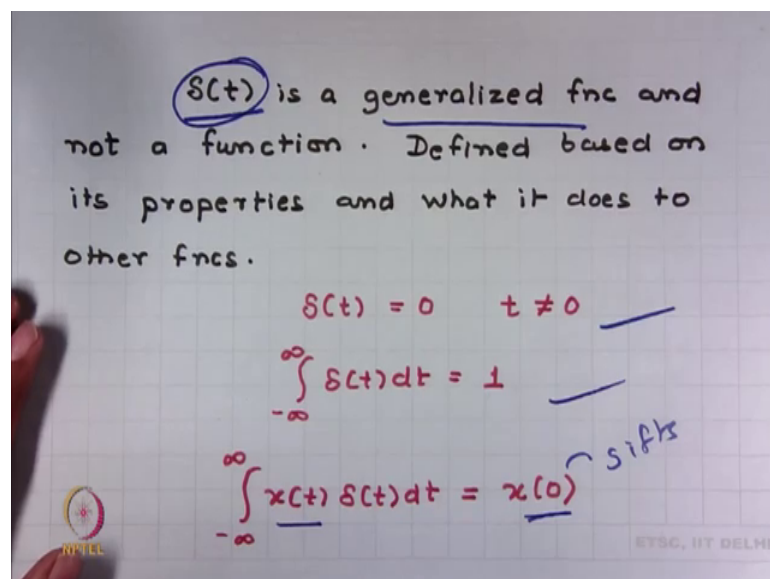 δ(t) is a generalized fnc and
not a function. Defined based on
its properties and what it does to
other fncs.
δ(t) = 0 t ≠ 0
∫_{-∞}^{∞} δ(t)dt = 1
sifts
∫_{-∞}^{∞} x(t) δ(t)dt = x(0)
NPTEL
ETSC, IIT DELHI